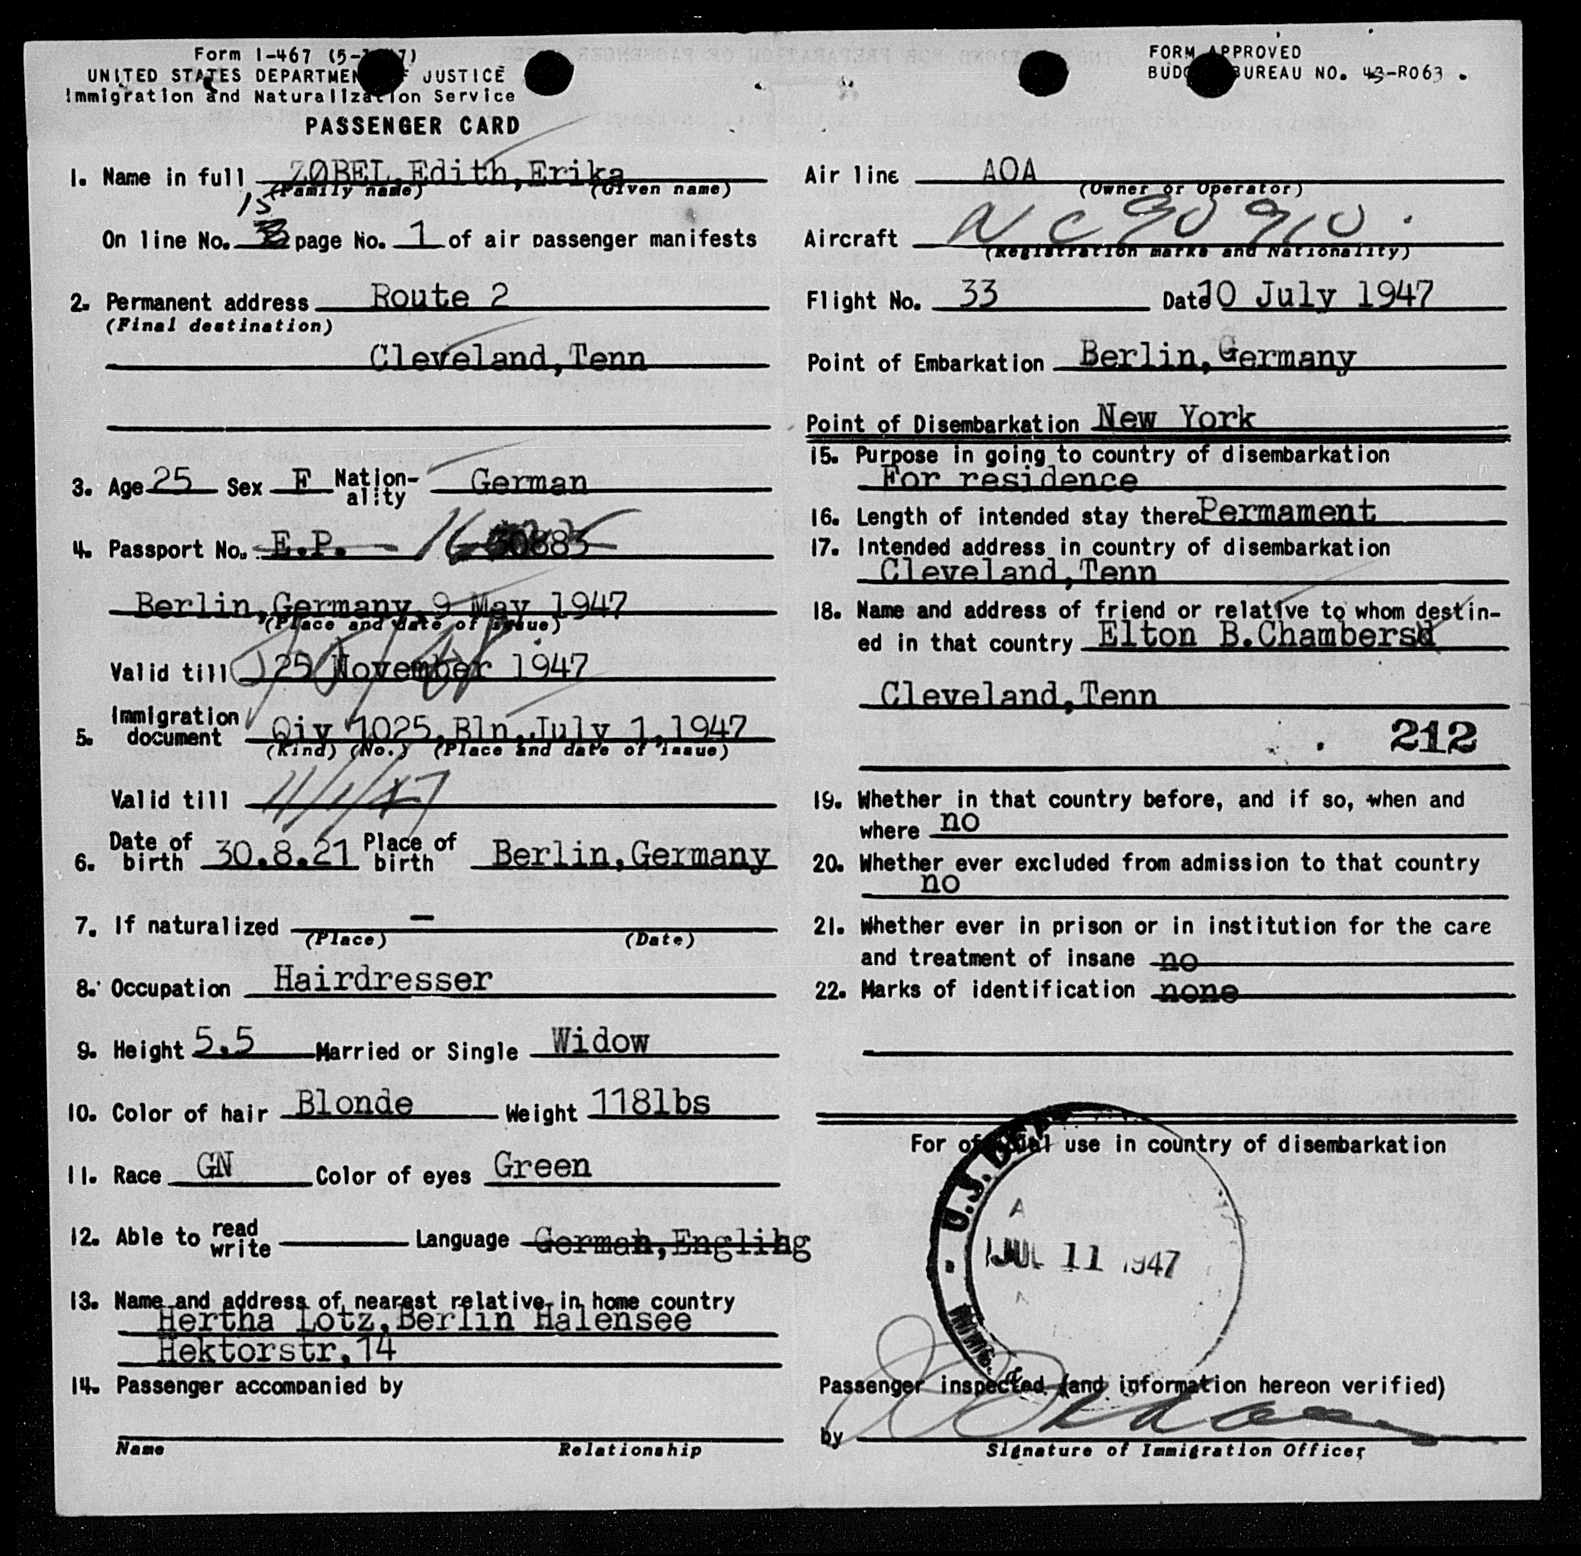 Form I-467
UNITED STATES DEPARTMENT OF JUSTICE
Immigration and Naturalization Service
PASSENGER CARD
1. Name in full ZØBEL, Edith, Erika
(Family name) (Given name)
15
On line No. page No. 1 of air passenger manifests
2. Permanent address Route 2
(Final destination)
Cleveland, Tenn
3. Age 25 Sex F Nation-ality German
4. Passport No. E.P.
Berlin, Germany, 9 May 1947
(Place and date of issue)
Valid till 25 November 1947
5. Immigration document Qiv 1025, Bln, July 1, 1947
(Kind) (No.) (Place and date of issue)
Valid till 11/1/47
6. Date of birth 30.8.21 Place of birth Berlin, Germany
7. If naturalized —
(Place) (Date)
8. Occupation Hairdresser
9. Height 5.5 Married or Single Widow
10. Color of hair Blonde Weight 118lbs
11. Race GN Color of eyes Green
12. Able to read write Language German, Englihg
13. Name and address of nearest relative in home country
Hertha Lotz, Berlin Halensee
Hektorstr, 14
14. Passenger accompanied by
Name Relationship
FORM APPROVED
BUDGET BUREAU NO. 43-R063.
Air line AOA
(Owner or Operator)
Aircraft NC90910
(Registration marks and Nationality)
Flight No. 33 Date 10 July 1947
Point of Embarkation Berlin, Germany
Point of Disembarkation New York
15. Purpose in going to country of disembarkation
For residence
16. Length of intended stay there Permament
17. Intended address in country of disembarkation
Cleveland, Tenn
18. Name and address of friend or relative to whom destin-
ed in that country Elton B. Chambers
Cleveland, Tenn
212
19. Whether in that country before, and if so, when and
where no
20. Whether ever excluded from admission to that country
no
21. Whether ever in prison or in institution for the care
and treatment of insane no
22. Marks of identification none
For official use in country of disembarkation
U.S.
JUL 11 1947
Passenger inspected (and information hereon verified)
by
Signature of Immigration Officer